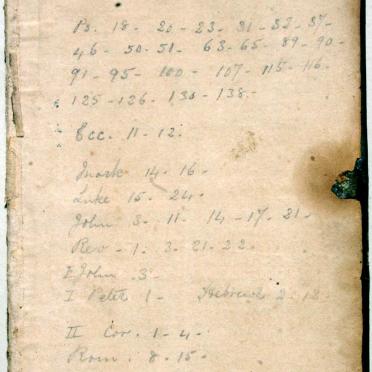 Ps. 18 - 20 - 23 - 31 - 32 - 37 -
46 - 50 - 51 - 63 - 65 - 89 - 90 -
91 - 95 - 100 - 107 - 115 - 116 -
125 - 126 - 130 - 138 -
Ecc. 11 - 12.
Mark 14 - 16 -
Luke 15 - 24 -
John 3 - 11 - 14 - 17 - 21 -
Rev - 1. 3 - 21 - 22 -
I John . 3 -
I Peter 1 - Hebrews 2 - 12 -
II Cor. 1 - 4 -
Rom. 8 - 15 -